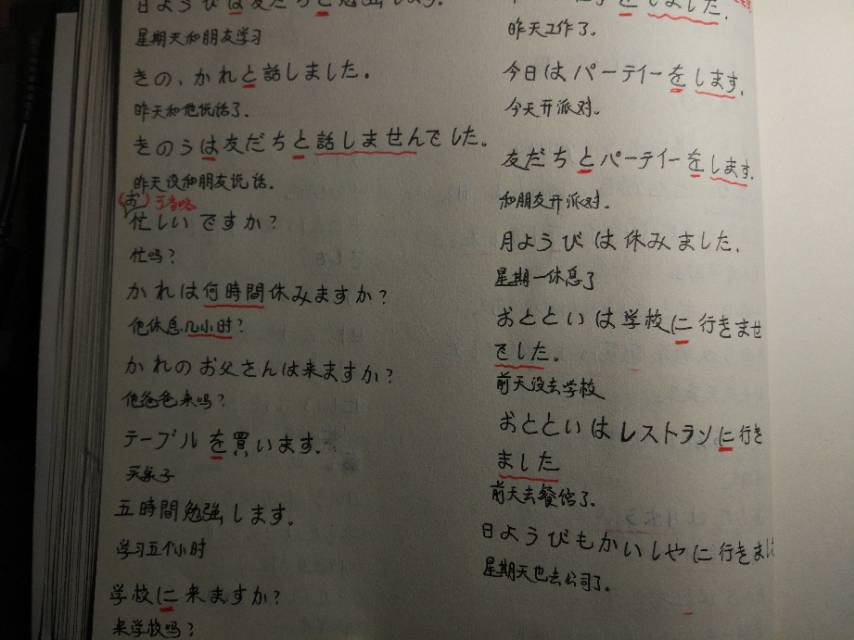 日ようびは友だちと勉強します.
星期天和朋友学习
きの、かれと話しました。
昨天和他说话了.
きのうは友だちと話しませんでした。
昨天没和朋友说话.
(お)可省略
忙しいですか?
忙吗?
かれは何時間休みますか?
他休息几小时?
かれのお父さんは来ますか?
他爸爸来吗?
テーブルを買います.
买桌子
五時間勉強します。
学习五个小时
学校に来ますか?
来学校吗?
をしました.
昨天工作了.
今日はパーテイーをします.
今天开派对.
友だちとパーテイーをします.
和朋友开派对.
月ようびは休みました.
星期一休息了
おとといは学校に行きませ
でした.
前天没去学校
おとといはレストランに行き
ました
前天去餐馆了.
日ようびもかいしやに行きまし
星期天也去公司了.